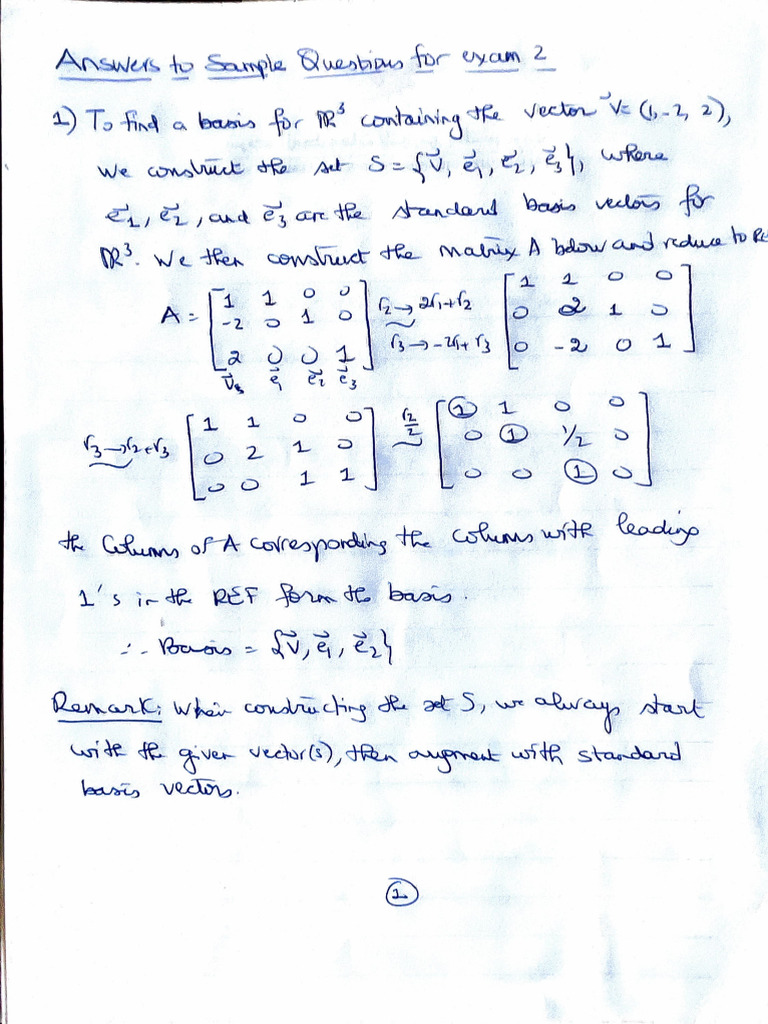 Answers to Sample Questions for exam 2
1) To find a basis for ℝ³ containing the vector v⃗ = (1, -2, 2),
we construct the set S = {v⃗, e⃗₁, e⃗₂, e⃗₃}, where
e⃗₁, e⃗₂, and e⃗₃ are the standard basis vectors for
ℝ³. We then construct the matrix A below and reduce to RE
A = [1 1 0 0; -2 0 1 0; 2 0 0 1] r₂→2r₁+r₂ ~ r₃→-2r₁+r₃ [1 1 0 0; 0 2 1 0; 0 -2 0 1]
v⃗ e⃗₁ e⃗₂ e⃗₃
r₃→r₂+r₃ ~ [1 1 0 0; 0 2 1 0; 0 0 1 1] r₂/2 ~ [① 1 0 0; 0 ① 1/2 0; 0 0 ① 0]
the Columns of A corresponding the columns with leading
1's in the REF form the basis.
∴ Basis = {v⃗, e⃗₁, e⃗₂}
Remark: When constructing the set S, we always start
with the given vector(s), then augment with standard
basis vectors.
①